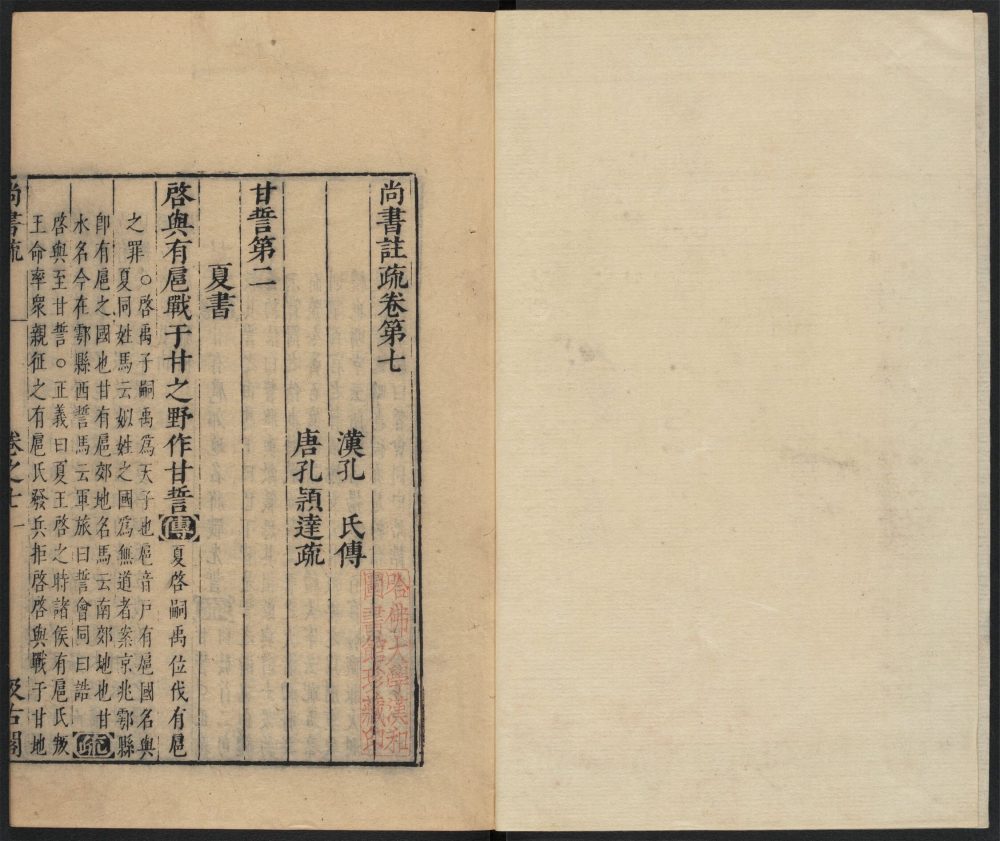 尚書註疏卷第七
漢孔　氏傳
唐孔穎達疏
甘誓第二
夏書
啓與有扈戰于甘之野作甘誓傳夏啓嗣禹位伐有扈
之罪○啓禹子嗣禹爲天子也扈音戶有扈國名與
夏同姓馬云姒姓之國爲無道者案京兆鄠縣
卽有扈之國也甘有扈郊地名馬云南郊地也甘
水名今在鄠縣西誓馬云軍旅曰誓會同曰誥疏
啓與至甘誓○正義曰夏王啓之時諸侯有扈氏叛
王命率衆親征之有扈氏發兵拒啓啓與戰于甘地
尚書疏　卷之七　一　汲古閣
哈佛大學漢和
圖書館珍藏印